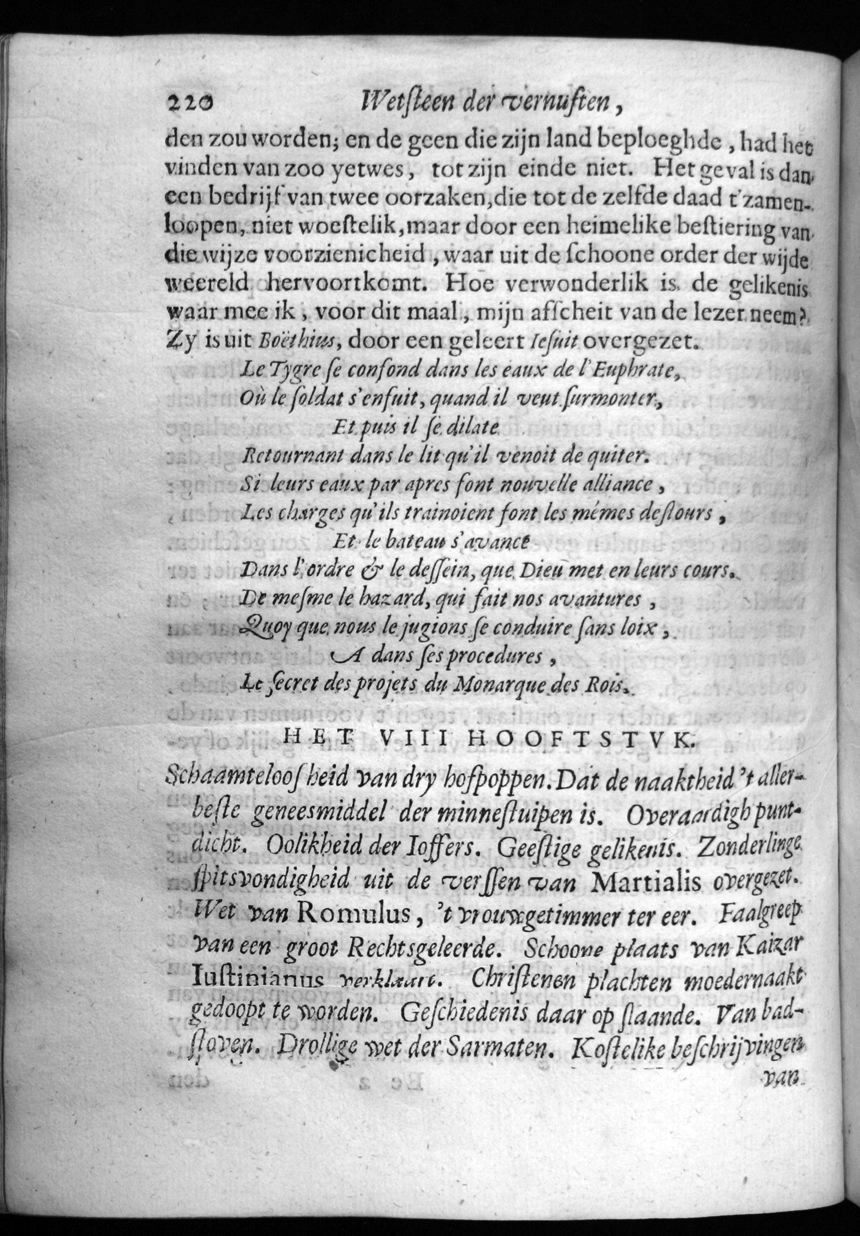 220 Wetſteen der vernuften,
den zou worden; en de geen die zijn land beploeghde, had het
vinden van zoo yetwes, tot zijn einde niet. Het geval is dan
een bedrijf van twee oorzaken, die tot de zelfde daad t'zamen-
loopen, niet woeſtelik, maar door een heimelike beſtiering van
die wijze voorzienicheid, waar uit de ſchoone order der wijde
weereld hervoortkomt. Hoe verwonderlik is de gelikenis
waar mee ik, voor dit maal, mijn afſcheit van de lezer neem?
Zy is uit Boëthius, door een geleert Ieſuit overgezet.
Le Tygre ſe confond dans les eaux de l'Euphrate,
Où le ſoldat s'enfuit, quand il veut ſurmonter,
Et puis il ſe dilate
Retournant dans le lit qu'il venoit de quiter.
Si leurs eaux par apres font nouvelle alliance,
Les charges qu'ils trainoient font les mémes deſtours,
Et le bateau s'avance
Dans l'ordre & le deſſein, que Dieu met en leurs cours.
De meſme le hazard, qui fait nos avantures,
Quoy que nous le jugions ſe conduire ſans loix,
A dans ſes procedures,
Le ſecret des projets du Monarque des Rois.
HET VIII HOOFTSTVK.
Schaamteloosheid van dry hofpoppen. Dat de naaktheid 't aller-
beſte geneesmiddel der minneſtuipen is. Overaardigh punt-
dicht. Oolikheid der Ioffers. Geeſtige gelikenis. Zonderlinge
ſpitsvondigheid uit de verſſen van Martialis overgezet.
Wet van Romulus, 't vrouwgetimmer ter eer. Faalgreep
van een groot Rechtsgeleerde. Schoone plaats van Kaizar
Iuſtinianus verklaart. Chriſtenen plachten moedernaakt
gedoopt te worden. Geſchiedenis daar op ſlaande. Van bad-
ſtoven. Drollige wet der Sarmaten. Koſtelike beſchrijvingen
van